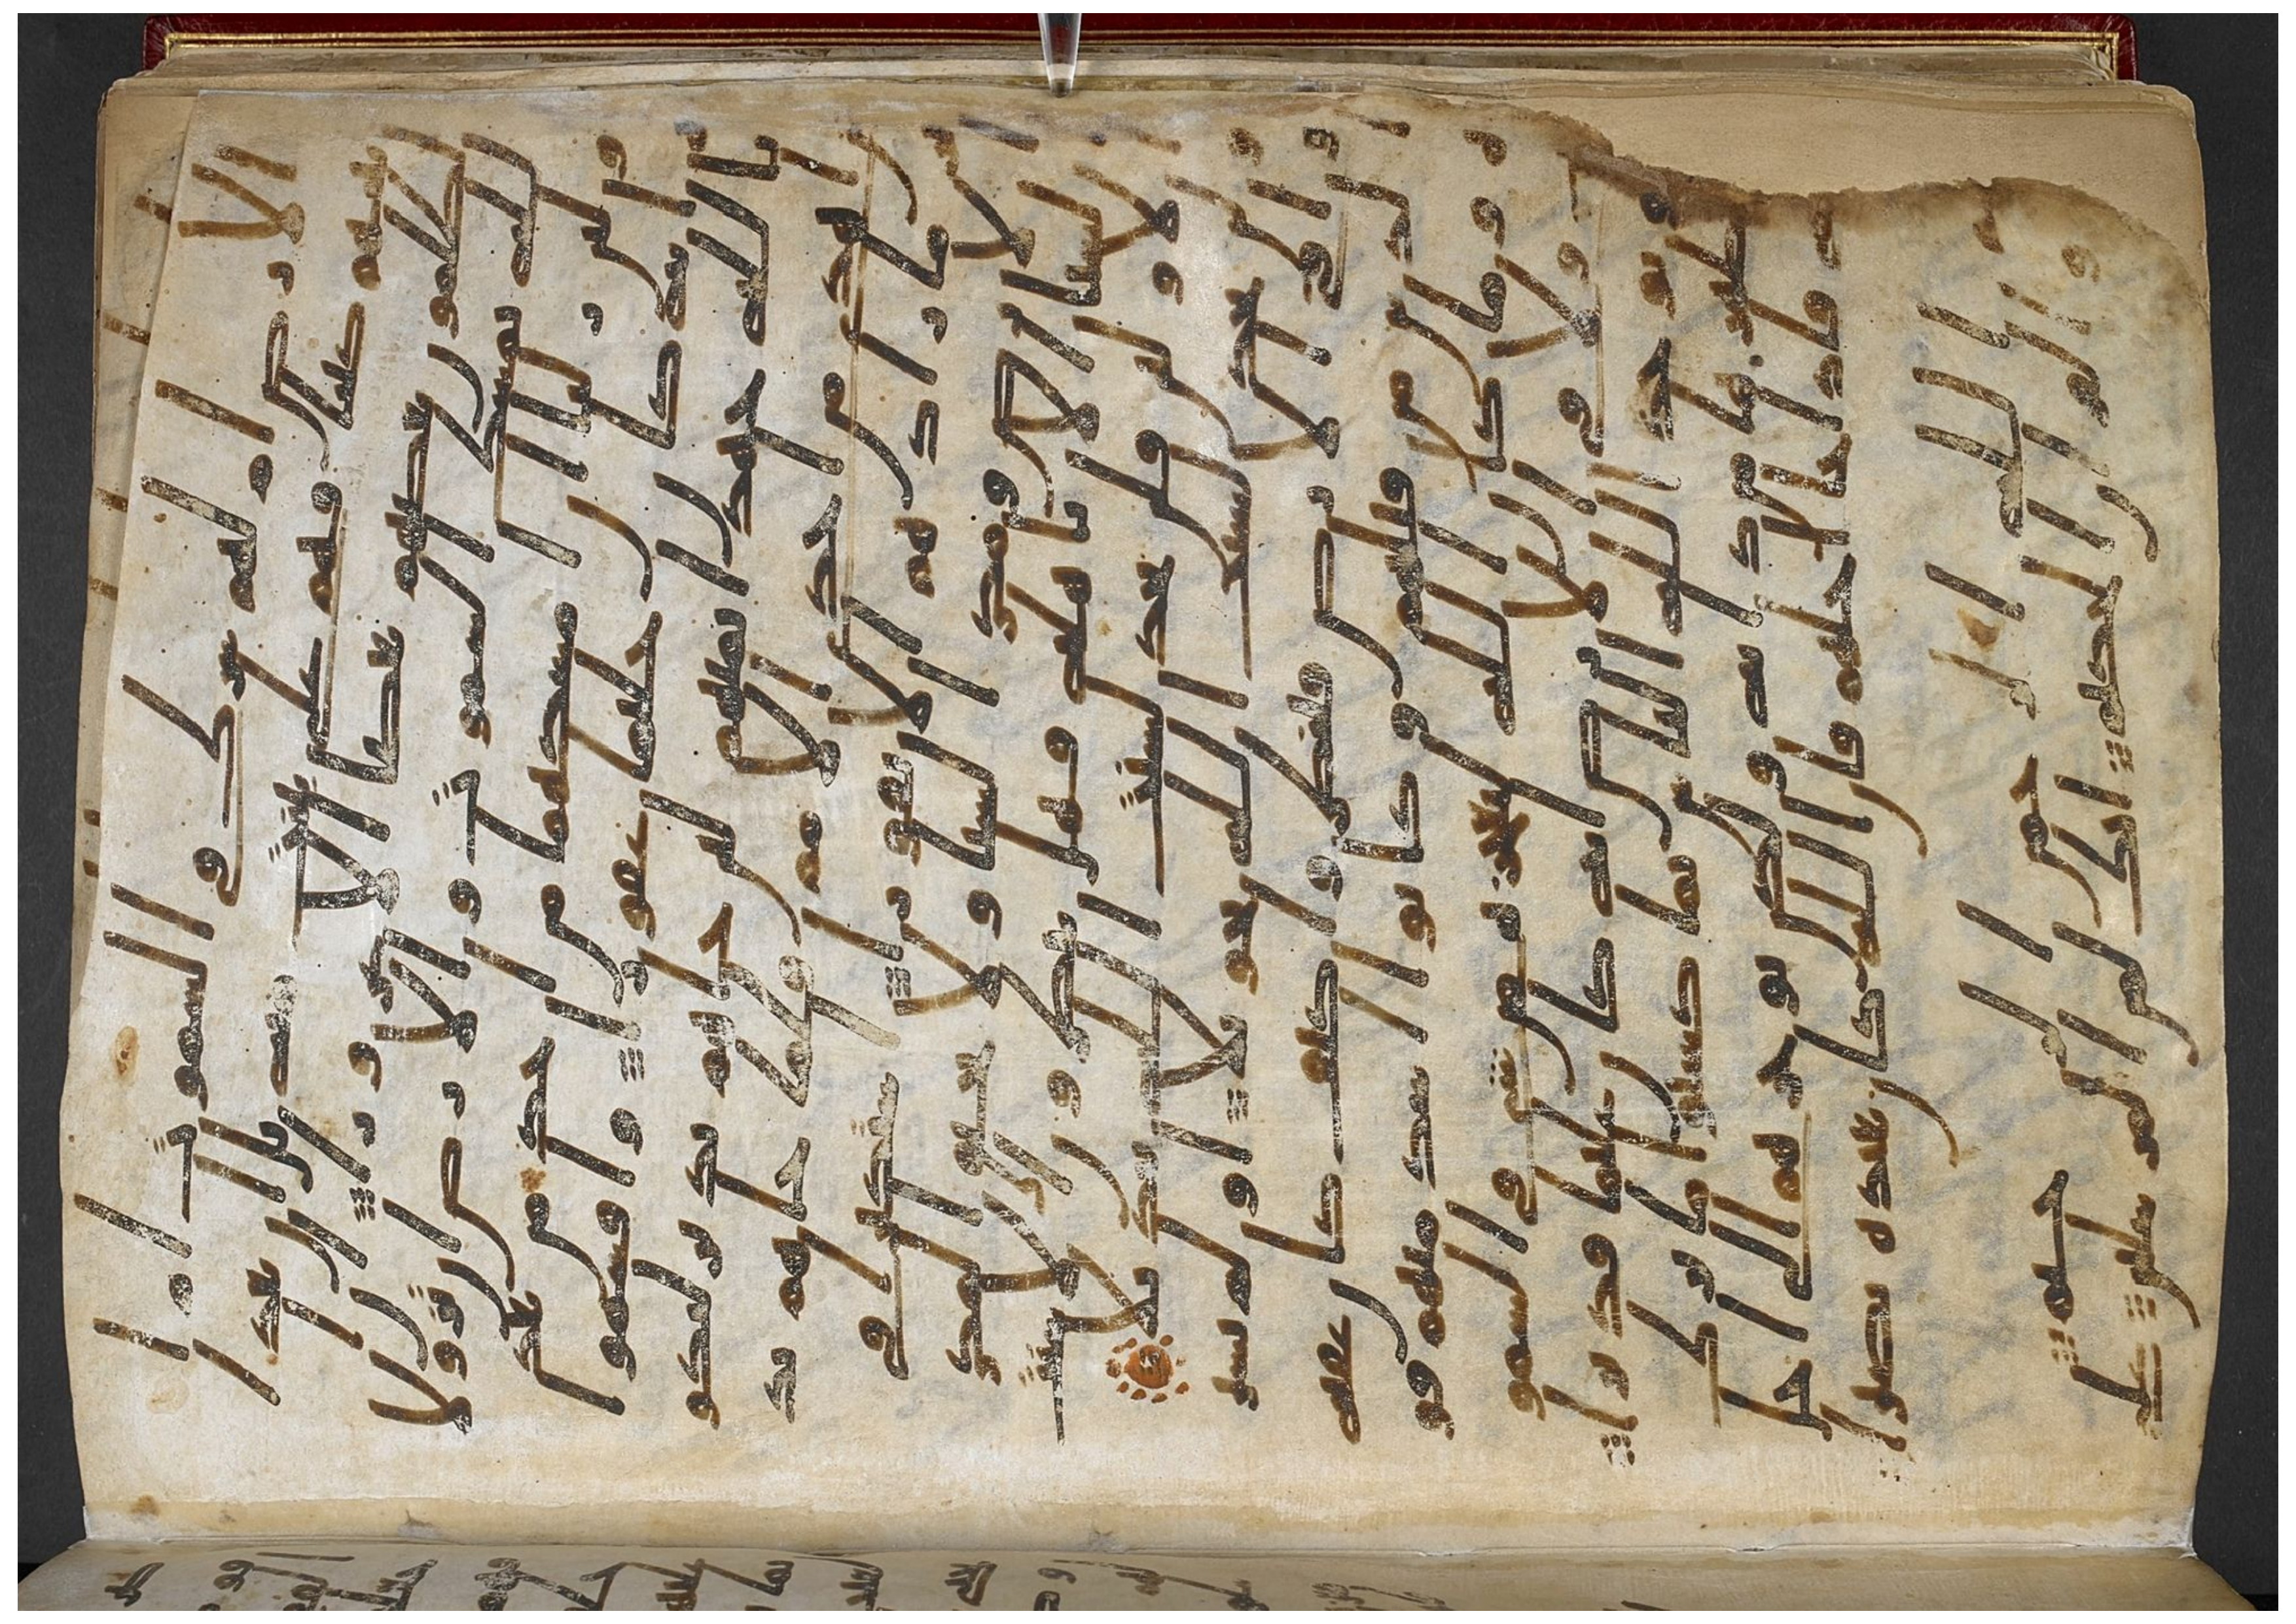 الارض ام لهم شرك في السموت ام ا
تينهم كتبا فهم على بينت منه بل ان يعد ا
لظلمون بعضهم بعضا الا غرورا ا
ن الله يمسك السموت والارض ان تزولا
ولئن زالتا ان امسكهما من احد من بعد
ه انه كان حليما غفورا واقسموا
بالله جهد ايمنهم لئن جاهم نذير ليكو
نن اهدى من احدى الامم فلما جاهم نذ
ير ما زادهم الا نفورا استكبارا في
الارض ومكر السيا ولا يحيق المكر
السيا الا باهله فهل ينظرون الا سنت
الاولين فلن تجد لسنت الله تبديلا
ولن تجد لسنت الله تحويلا اولم يسير
وا في الارض فينظروا كيف كان عقبه
الذين من قبلهم وكانوا اشد منهم قو
ه وما كان الله ليعجزه من شي في السمو
ت ولا في الارض انه كان عليما قديرا
ولو يواخذ الله الناس بما كسبوا ما ترك
على ظهرها من دابه ولكن يوخرهم الى اجل
مسمى فاذا جا اجلهم فان الله كان بعباده بصيرا
بسم الله الرحمن الرحيم
يس والقران الحكيم انك لمن المرسلين على